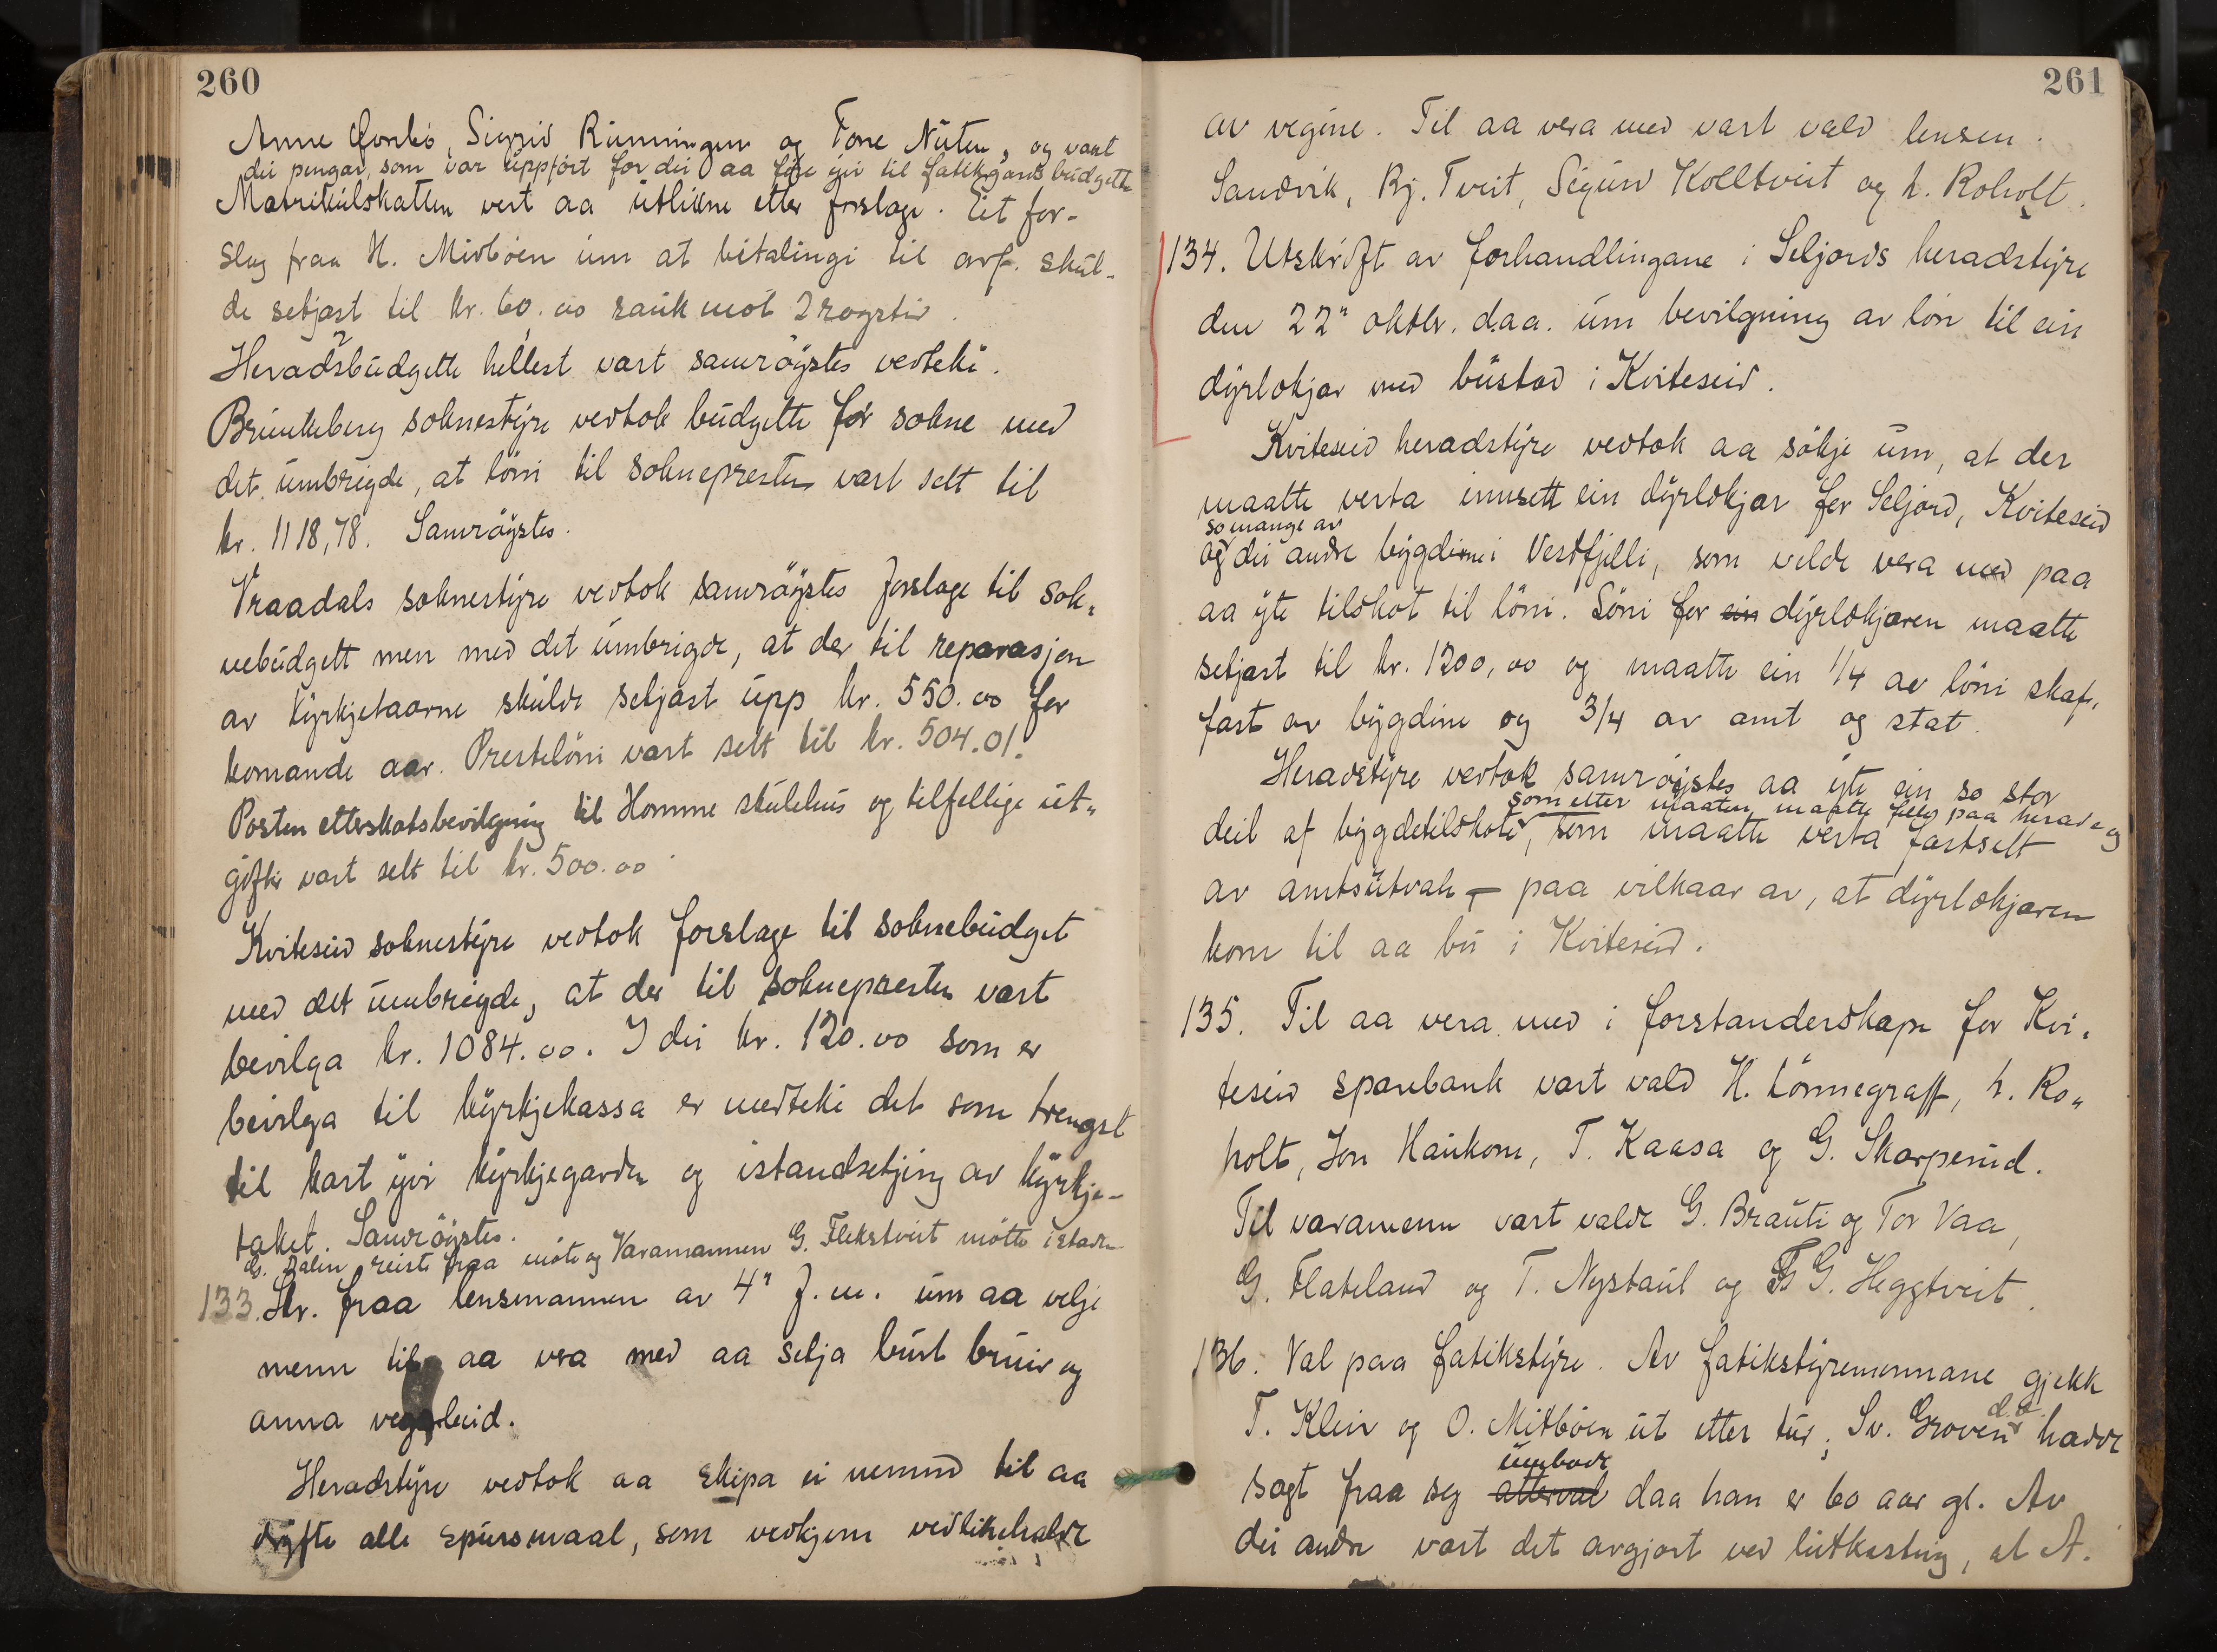 260
Anne Sigrid Rinningen og Tone Nuten, og vart
dei pengar, som var uppfört for dei aa före yvi til fatikgardsbudgette
Matrikulskatten vert aa utlikne etter forslage. Eit for-
slag fraa H. Midböen um at betalingi til skul-
de setjast til kr. 60.00 rauk mot 2 røyster.
Heradsbudgette hellest vart samröystes vedteki.
Brunkeberg soknestyre vedtok budgette for sokne med
det umbrigde, at löni til soknepresten vart sett til
kr. 1118,78. Samröystes.
Vraadals soknestyre vedtok samröystes forslage til sok-
nebudgett men med det umbrigde, at der til reparasjon
av kyrkjetaarne skulde setjast upp kr. 550.00 for
komande aar. Presteløni vart sett til kr. 504.01.
Posten etterskotsbevilgning til Homme skulehus og tilfellige ut-
gifter vart sett til kr. 500.00
Kviteseid soknestyre vedtok forslage til soknebudget
med det umbrigde, at der til soknepresten vart
bevilga kr. 1084.00. I dei kr. 120.00 som er
bevilga til kyrkjekassa er medteki det som trengst
til kart yvi kyrkjegarden og istandsetjing av kyrkje-
taket. Samröystes.
G. Dalen reiste fraa möte og Varamannen G. Flekstveit mötte istaden
133. Skr. fraa lensmannen av 4" f.m. um aa velje
menn til aa vera med aa setja burt bruir og
anna vegarbeid.
Heradstyre vedtok aa skipa ei nemnd til aa
dryfte alle spursmaal, som vedkjem vedlikehalde
261
av vegine. Til aa vera med vart vald lensm.
Sandvik, Bj. Tveit, Sigurd Kolltveit og h. Roholt.
134. Utskrift av forhandlingane i Seljords heradstyre
den 22" oktbr. d.aa. um bevilgning av lön til ein
dyrlækjar med bustad i Kviteseid.
Kviteseid heradstyre vedtok aa sökje um, at der
maatte verta innsett ein dyrlækjar for Seljord, Kviteseid
so mange av
og dei andre bygdine i Vestfjelli, som vilde vera med paa
aa yte tilskot til löni. Löni for ein dyrlækjaren maatte
setjast til kr. 1200,00 og maatte ein 1/4 av löni skaf-
fast av bygdine og 3/4 av amt og stat.
Heradstyre vedtok samröystes aa yte ein so stor
som etter maaten maatte falle paa herade og
deil af bygdetilskote, som maatte verta fastsett
av amtsutvale – paa vilkaar av, at dyrlækjaren
kom til aa bu i Kviteseid.
135. Til aa vera med i forstanderskape for Kvi-
teseid sparebank vart vald H. Lönnegraff, h. Ro-
holt, Jon Haukom, T. Kaasa og G. Skarperud.
Til varamenn vart valde G. Brauti og Tor Vaa,
G. Flateland og T. Nystaul og G. Heggtveit.
136. Val paa fatikstyre. Av fatikstyremennane gjekk
T. Klein og O. Mitböen ut etter tur, Sv. Groven d.e. hadde
umbode
sagt fraa seg atterval daa han er 60 aar gl. Av
dei andre vart det avgjort ved lutkasting, at A.